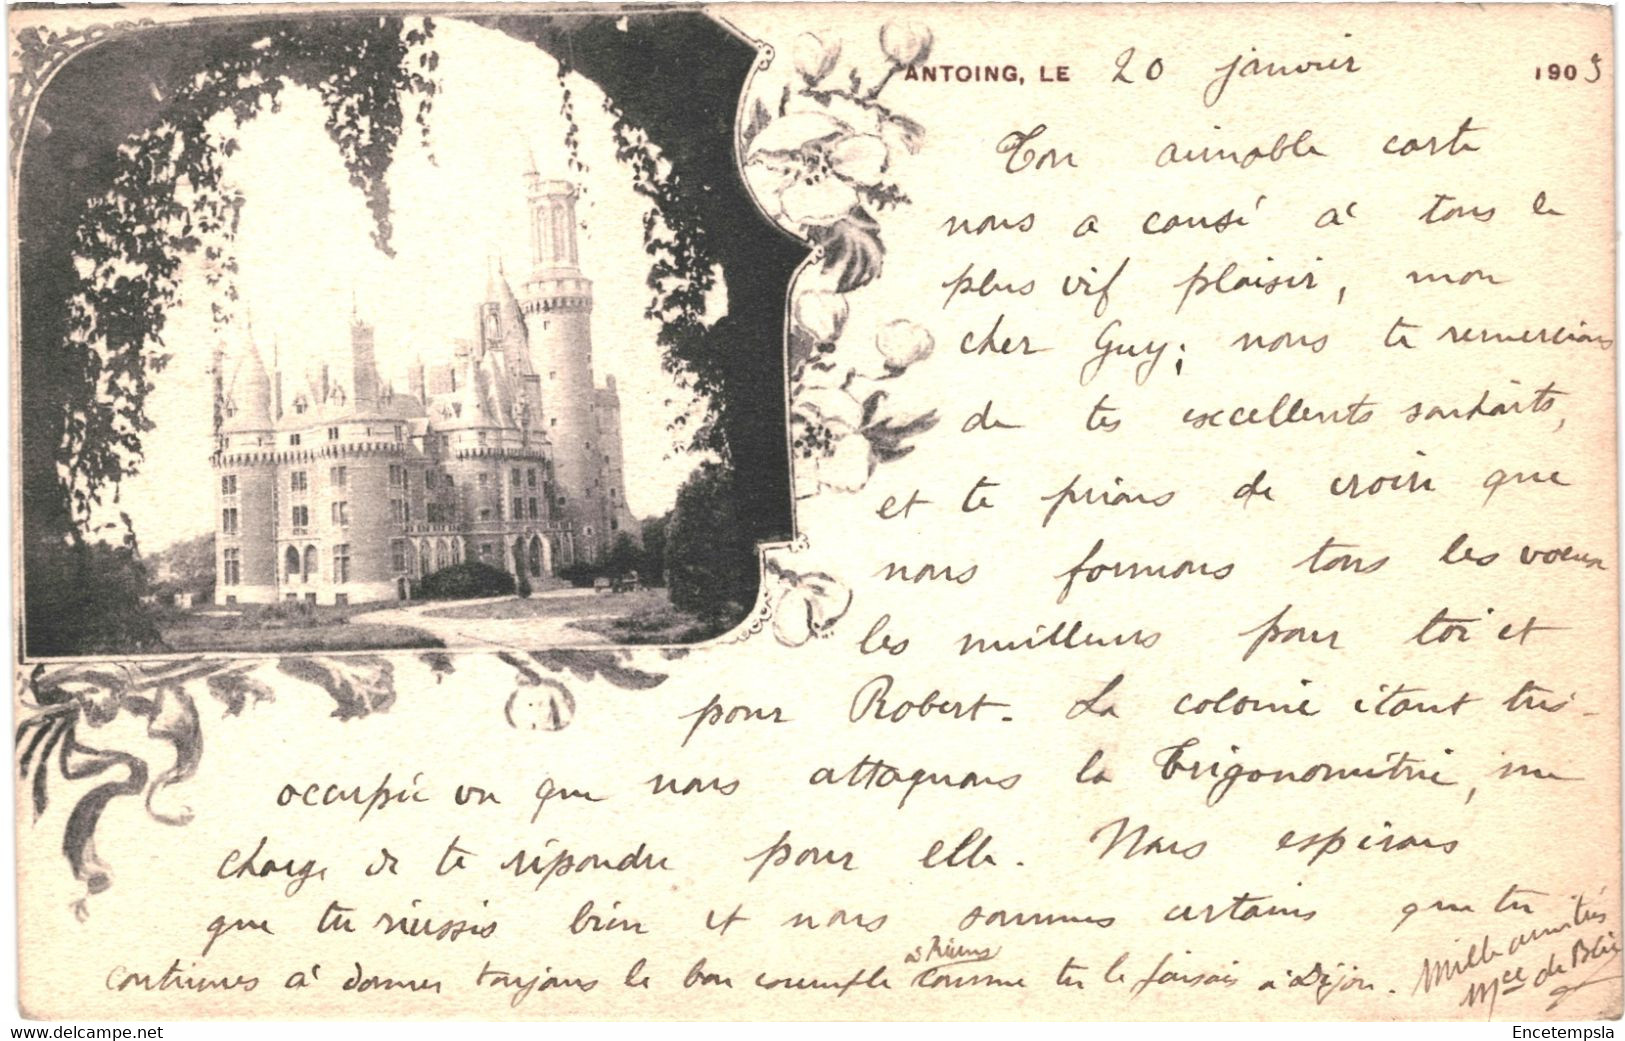 ANTOING, LE 20 janvier 1903
Ton aimable carte
nous a causé à tous le
plus vif plaisir, mon
cher Guy; nous te remercions
de tes excellents souhaits,
et te prions de croire que
nous formons tous les voeux
les meilleurs pour toi et
pour Robert. La colonie étant très-
occupée vu que nous attaquons la Trigonométrie, me
charge de te répondre pour elle. Nous espérons
que tu réussis bien et nous sommes certains que tu
à Reims
continues à donner toujours le bon exemple comme tu le faisais à Dijon.
Mille amitiés
Mce de
Encetempsla